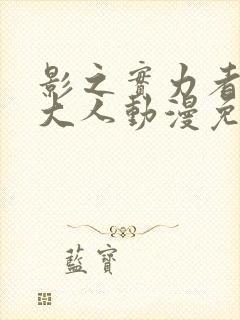 影之實力者
大人動漫免
藍寶